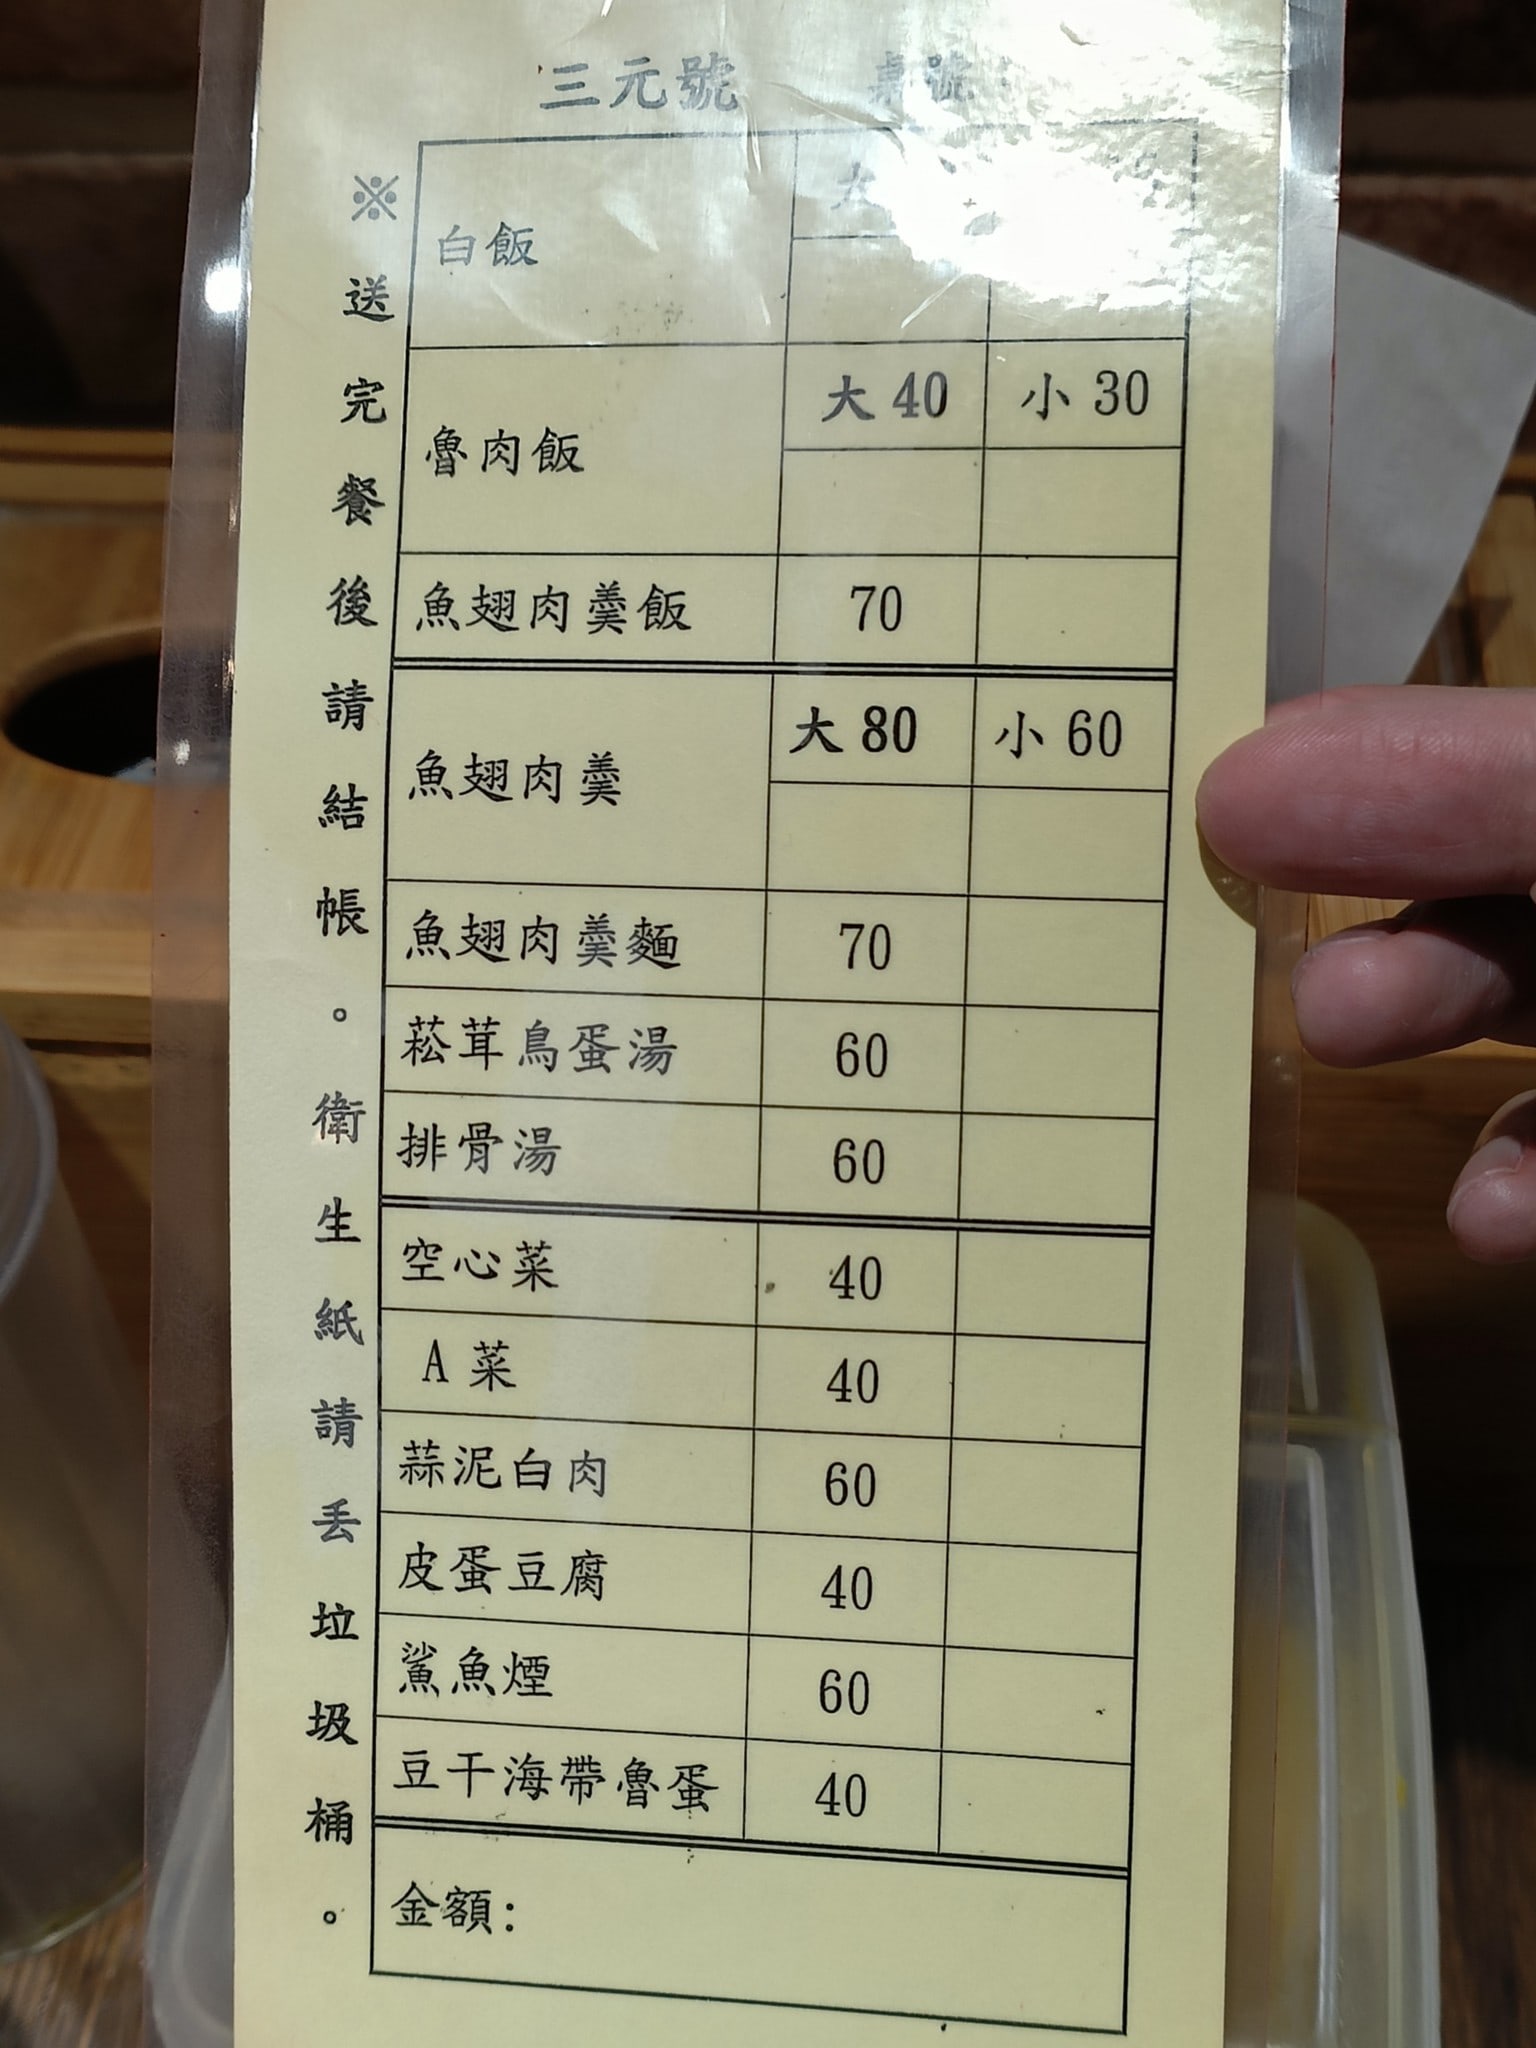 三元號 桌號
※送完餐後請結帳。衛生紙請丟垃圾桶。
白飯 大
魯肉飯 大 40 小 30
魚翅肉羹飯 70
魚翅肉羹 大 80 小 60
魚翅肉羹麵 70
菘茸鳥蛋湯 60
排骨湯 60
空心菜 40
A 菜 40
蒜泥白肉 60
皮蛋豆腐 40
鯊魚煙 60
豆干海帶魯蛋 40
金額: